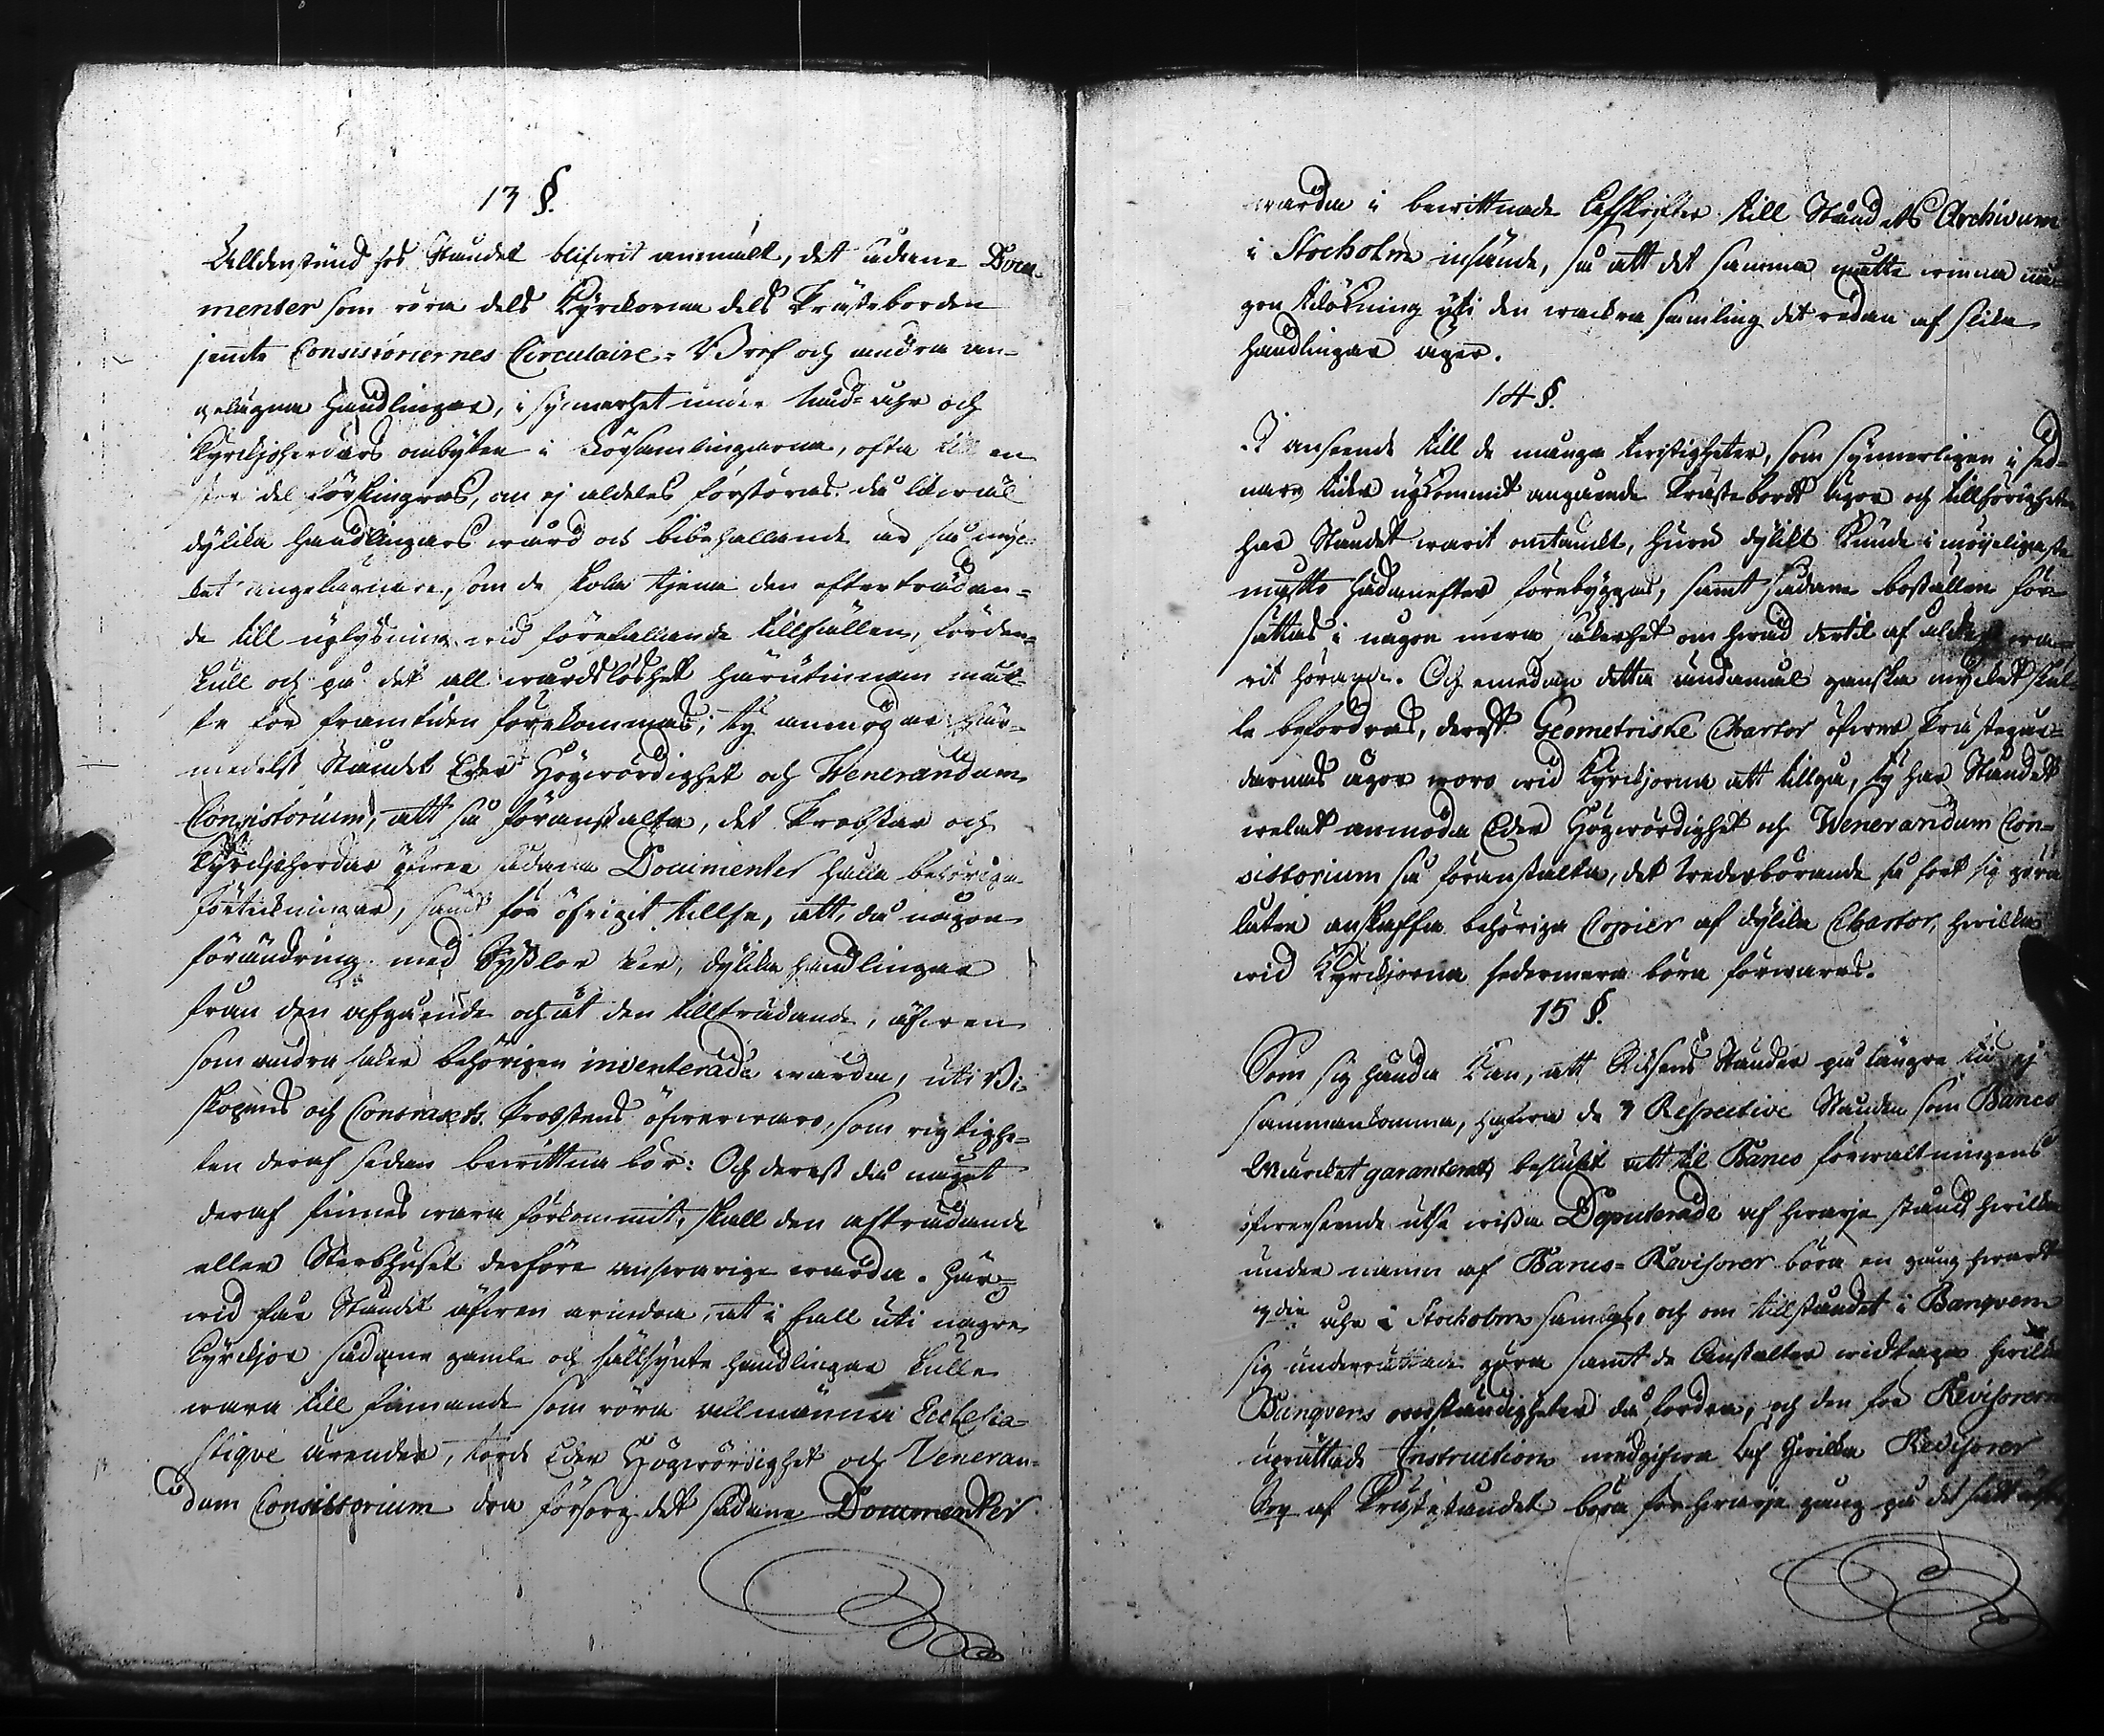 13 §.
Alldenstund hos Ståndet blifvit anmält, det sådane Docu-
menter som röra dels Kyrckorna dels Prästeborden
jemte Consistoriernes Circulaire-Bref och andra an-
gelägna Handlingar, i synnerhet under Nåd-åhr och
Kyrckjoherdars ombyten i Församlingarna, ofta till en
stor del förskingras, om ej aldeles förstöras, då likwäl
dylika Handlingars wård och bibehållande är så myc-
ket angelägnare, som de skola tjena den efterträdan-
de till uplysning wid förefallande tillfällen, fördens-
skull och på det all wårdslöshet härutinnan måt-
te för framtiden förekommas; ty anmodar här-
medelst Ståndet Eder Högwördighet och Wenerandum
Consistorium, att så föranstalta, det Probstar och
Kyrckjoherdar öfwer sådana Documenter hålla behöriga
Förtekningar, samt för öfrigit tillse, att, då någon
förändring med Sysslor sker, dylika handlingar
från den afgående och åt den tillträdande, äfwen
som andra saker behörigen inventerade warda, uti Bi-
skopens och Contracts Probstens öfwerwaro, som rigtighe-
ten deraf sedan bewittna bör: Och derest då något
deraf finnes wara förkommit, skall den afträdande
eller Sterbhuset derföre answarige warda. Här-
wid får Ståndet äfwen erindra, at i fall uti någre
Kyrckjor sådane gamle och sällsynte handlingar skulle
wara till finnande som röra allmänna Ecclesia-
stique ärender, torde Eder Högwördighet och Veneran-
dum Consistorium dra försorg det sådane Documenter
warda i bewittnade Afskrifter till Ståndets Archivum
i Stockholm insände, så att det samma måtte winna nå-
gon tilökning uti den wackra samling det redan af slika
Handlingar äger.
14 §.
I anseende till de många twistigheter, som synnerligen i sed-
nare tider upkommit angående Prästebords ägor och tillhörigheter
har Ståndet warit omtänckt, huru dylikt kunde i möjeligaste
måtto hädanefter förebyggas, samt sådane boställen för-
sättas i någon mera säkerhet om hwad dertil af ålder wa-
rit hörande. Och emedan detta ändamål ganska mycket skul-
le befordras, derest Geometriske Chartor öfwer Prästegår-
darnas ägor woro wid Kyrckjorna att tillgå, ty har Ståndet
welat anmoda Eder Högwördighet och Wenerandum Con-
sistorium så föranstalta, det wederbörande så fort sig göra
låter anskaffa behöriga Copier af dylika Chartor, hwilka
wid Kyrckjorna sedermera böra förwaras.
15 §.
Som sig hända kan, att Riksens Ständer på längre tid ej
sammankomma, hafwa de 3 Respective Stånden som Banco
Wärcket garanterat, beslutit att til Banco förwaltningens
öfwerseende utse wissa Deputerade af hwarje stånd, hwilka
under namn af Banco-Revisorer böra en gång hwart
3die åhr i Stockholm samlas, och om tillståndet i Banquen
sig underrättade göra samt de Anstalter widtaga hwilka
Banquens omständigheter då fordra, och den för Revisorerne
uprättade Instruction medgifwa. Af hwilka Revisorer
Sex af Präste ståndet böra för hwarje gång på det sätt